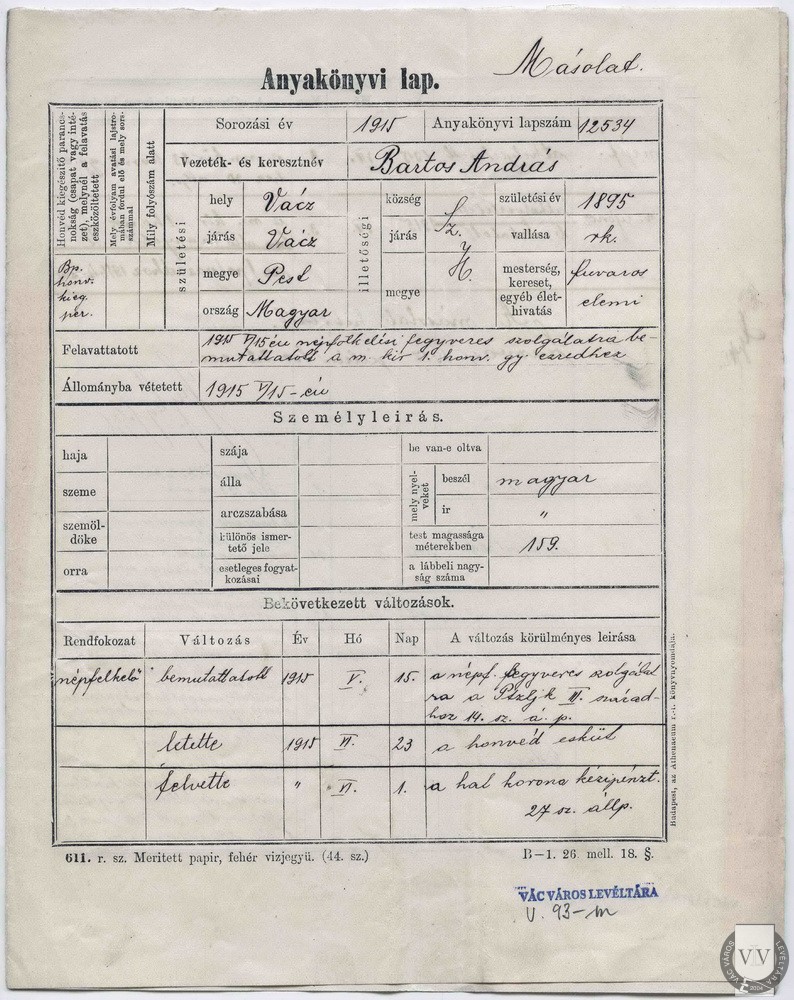 Másolat.
Anyakönyvi lap.
Honvéd kiegészitő parancsnokság (csapat vagy intézet), melynél a felavatás eszközöltetett
Mely évfolyam avatási lajstromában fordul elő és mely sorszámmal
Mily folyószám alatt
Sorozási év 1915 Anyakönyvi lapszám 12534
Vezeték- és keresztnév Bartos András
Bp.
honv.
kieg.
per.
születési
hely Vácz
járás Vácz
megye Pest
ország Magyar
illetőségi
község
járás
megye
Sz.
y
H.
születési év 1895
vallása rk.
mesterség, kereset, egyéb élethivatás fuvaros
elemi
Felavattatott 1915 V/15 én népfölkelési fegyveres szolgálatra be-
mutattatott a m. kir 1. honv. gy. ezredhez
Állományba vétetett 1915 V/15-én
Személyleirás.
haja
szeme
szemöldöke
orra
szája
álla
arczszabása
különös ismertető jele
esetleges fogyatkozásai
be van-e oltva
mely nyelveket
beszél magyar
ir "
test magassága méterekben 159.
a lábbeli nagyság száma
Bekövetkezett változások.
Rendfokozat Változás Év Hó Nap A változás körülményes leirása
népfelkelő bemutattatott 1915 V. 15. a népf. fegyveres szolgálat
ra a III. század-
hoz 14. sz. á. p.
letette 1915 VI. 23 a honvéd esküt
felvette " VI. 1. a hat korona kézipénzt.
27 sz. állp.
Budapest, az Athenaeum r.-t. könyvnyomdája.
611. r. sz. Meritett papir, fehér vizjegyü. (44. sz.) B—1. 26. mell. 18. §.
VÁC VÁROS LEVÉLTÁRA
V. 93-m
VÁC VÁROS LEVÉLTÁRA
VVL
2004